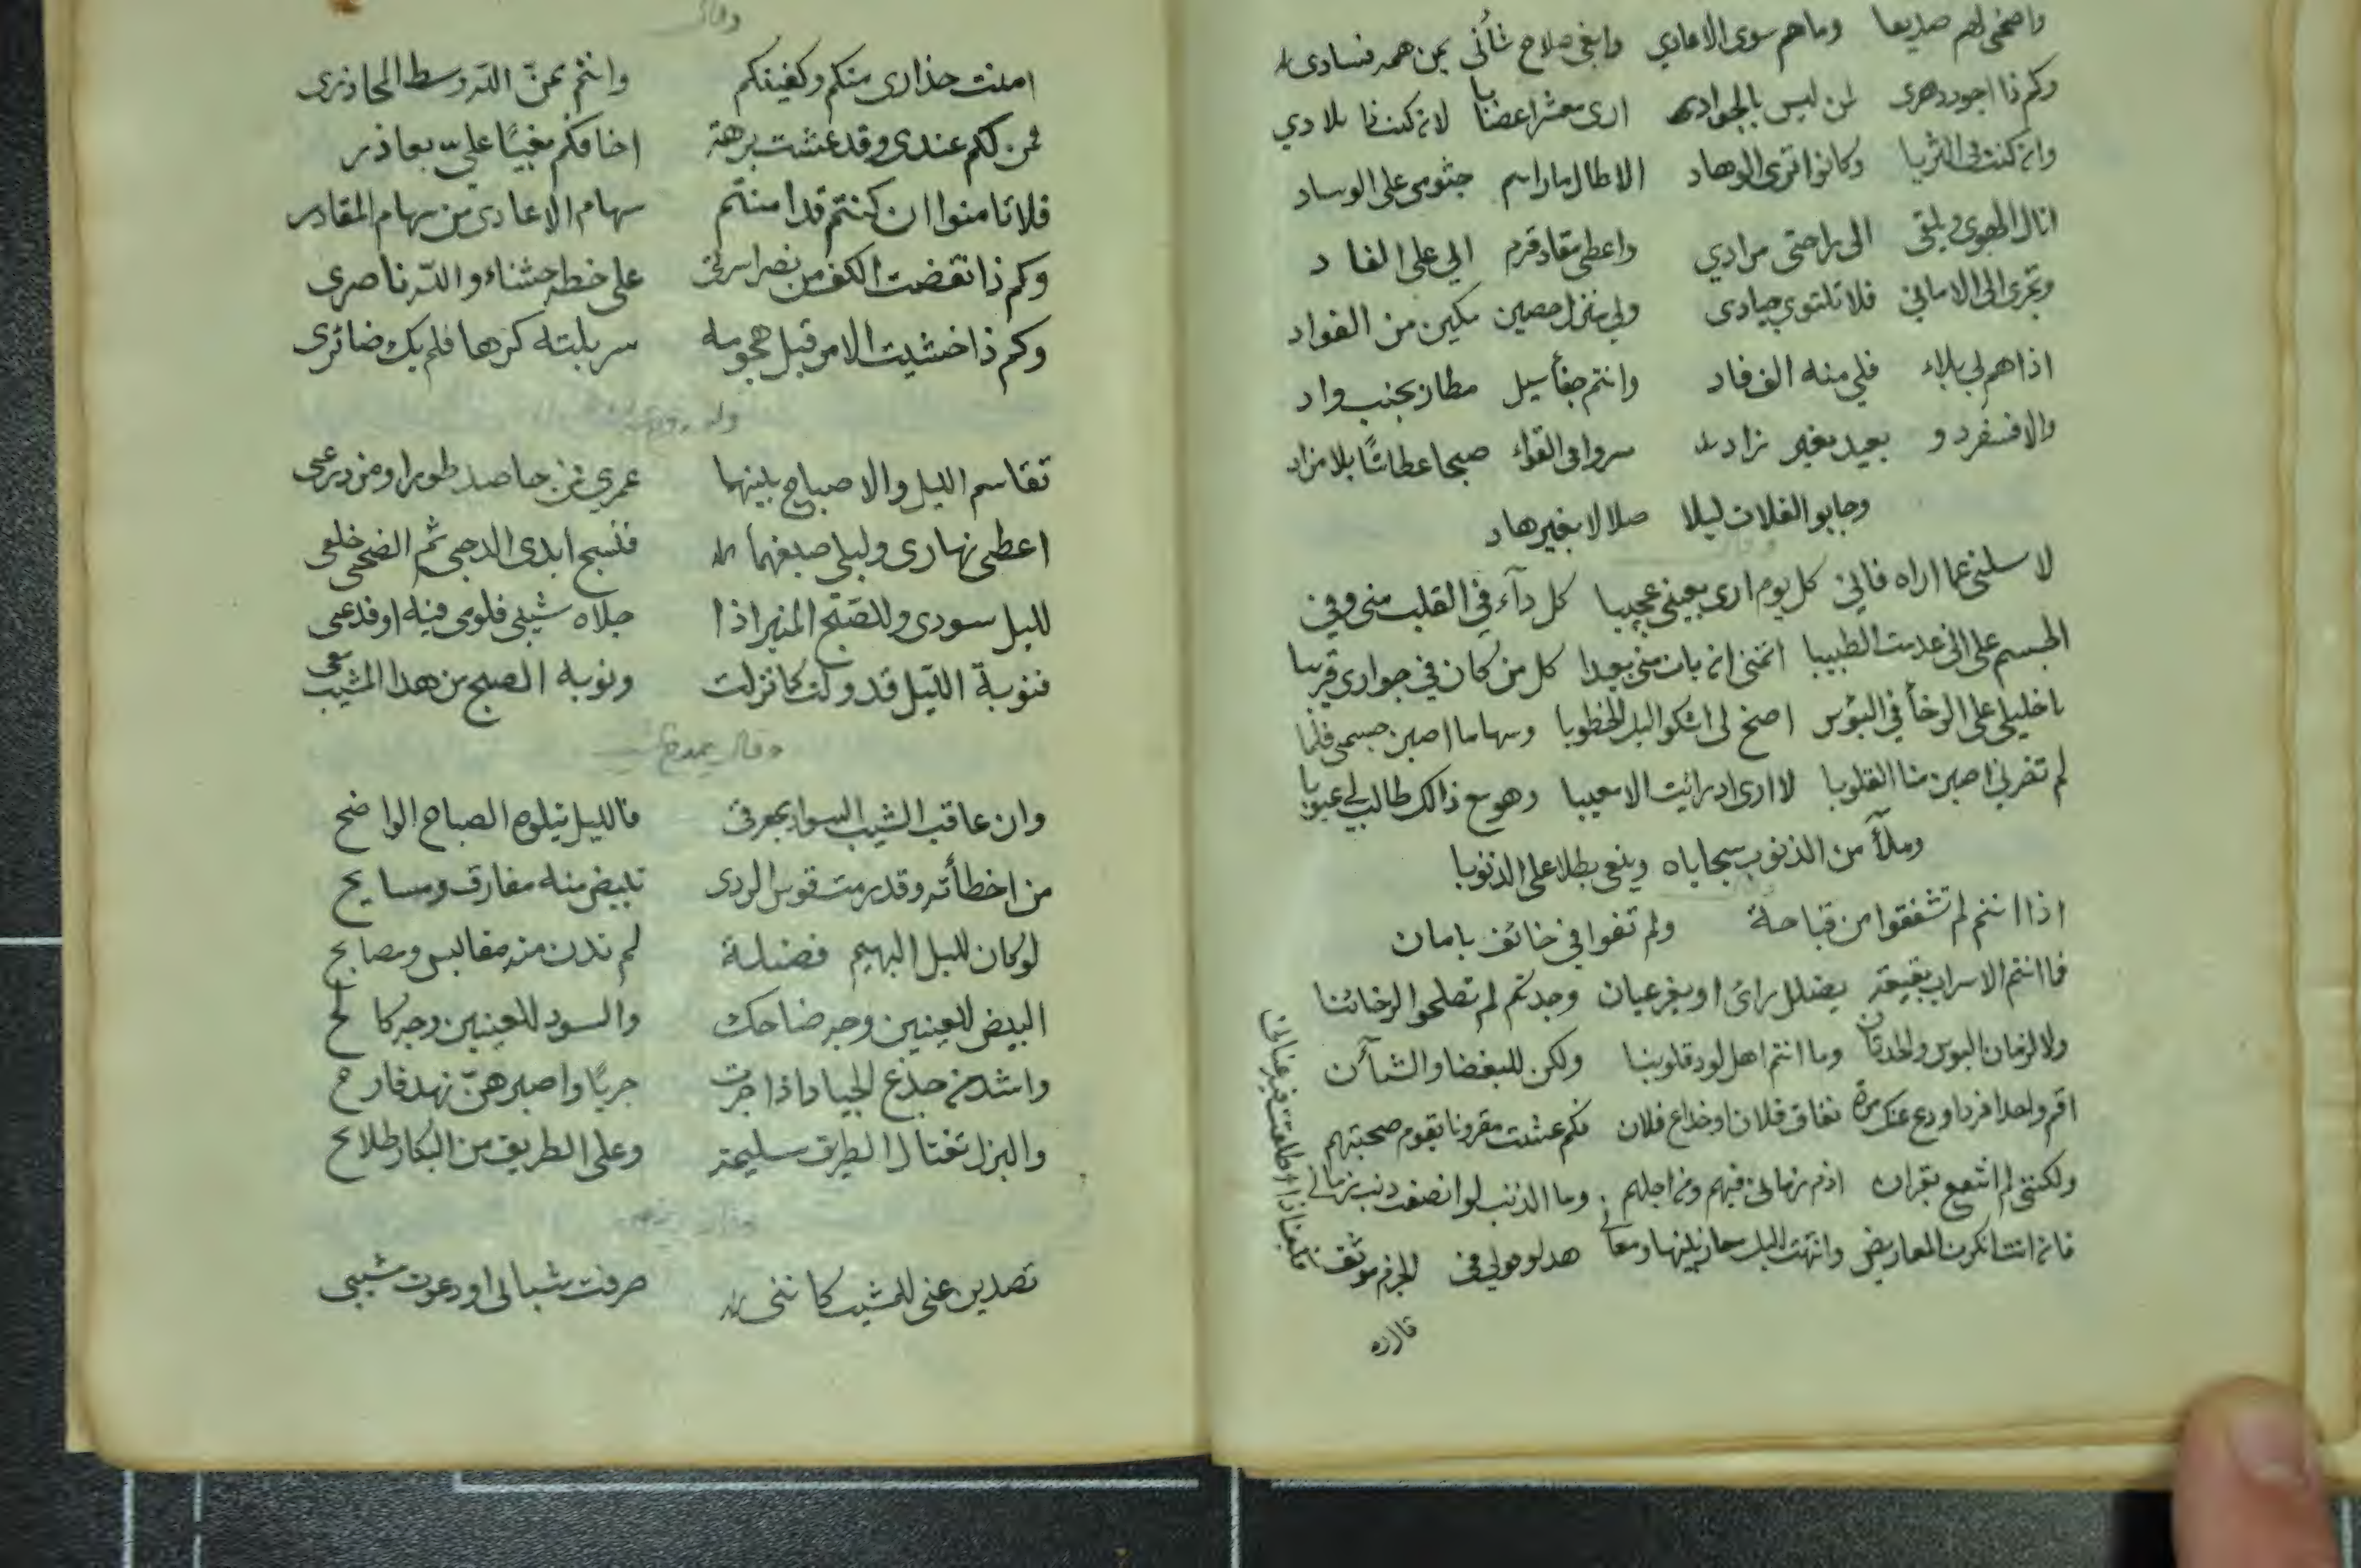 واضحى لهم صديقا وما هم سوى الاعادي وابغى صلاح شأنى بمن همه فسادى
وكم ذا اجود دهرى لمن ليس بالجواد ارى معشرا غضابا لان كنت فى بلادي
وان كنت فى الثريا وكانوا ثرى الوهاد الا طال ما رايتم جثومى على الوساد
انال الهوى ويلقى الى راحتى مرادي واعطى مقاد قرم ابي على القاد
وتجرى الى الامانى فلا تلتوي جيادى ولى منزل حصين مكين من الفواد
اذا هم بى بلاء فلى منه الف فاد وانتم جفأ سيل مطار بجنب واد
والا فسفر دو بعيد بغير زاد سروا فى القواء صبحا عطاشًا بلا مزاد
وجابو الفلات ليلا ضلالا بغير هاد
لا سلنى عما اراه فانى كل يوم ارى بعينى عجيبا كل دآء فى القلب منى وفى
الجسم على انى عدمت الطبيبا اتمنى ان بات منى بعيدا كل من كان في جوارى قريبا
يا خليلى على الرخأ فى البؤس اصخ لى اشكو اليك الخطوبا وسهاما اصبن جسمى فلما
لم تضرنى اصبن منا القلوبا لا ارى اد رائيت الا معيبا وهو مع ذالك طالب لى عيوبا
وملآ من الذنوب سجاياه وينعى بطلا على الذنوبا
اذا انتم لم تشفقوا من قباحة ولم تفوا فى خائف بامان
فما انتم الا سراب بقيعة يضلل رائ او بغير عيان وجدتكم لم تصلحوا لرخائنا
ولا لزمان البوس والحدثان وما انتم اهل لود قلوبنا ولكن للبغضا والشنآن
اقم واحدا فردا ودع عنك مرة نفاق فلان او خداع فلان فكم عشت مقرونا بقوم صحبتهم
ولكننى لم انتفع بقران اذم زمانى فيهم ومن اجلهم وما الذنب لو انصفت ذنب زمانى
فان انت انكرت المعاريض وانتهت اليك معاريضها ومعانى
قال ره
وقال
امنت حذارى منكم وكفيتكم وانتم بمنّ اللّه وسط المحاذرى
فمن لكم عندى وقد عشت برهة اخافكم بغيًا علىّ بعاذر
فلا تامنوا ان كنتم قد امنتم سهام الاعادى من سهام المقادر
وكم ذا نقضت الكف من نصر اسرتى على خطة خشناء واللّه ناصرى
وكم ذا خشيت الامر قبل هجومه سربلته كرها فلم يك ضائرى
تقاسم الليل والاصباح بينهما عمرى فمن حاصد طورا ومزدرعى
اعطى نهارى وليلى صبغهما فنسج ابدى الدجى ثم الضحى خلعى
لليل سودى وللصبح المنير اذا جلاه شيبى فلومى فيه او فدعى
فنوبة الليل قد ولت كما نزلت ونوبه الصبح من هذا المشيب معى
وقال يمدح الشيب
وان عاقب الشيب السواد بمفرقى فالليل يتلوه الصباح الواضح
من اخطأته وقد رمت قوس الردى تبيض منه مفارق ومسايح
لو كان لليل البهيم فضيلة لم تدن منه مقابس ومصابح
البيض للعينين وجه ضاحك والسود للعينين وجه كالح
واشد من جذع الجياد اذا جرت جريًا واصبرهنّ نهد قارح
والبزل تغتال الطريق سليمة وعلى الطريق من البكار طلايح
تصدين عنى للمشيب كاننى صرفت شبابى او دعوت مشيبى